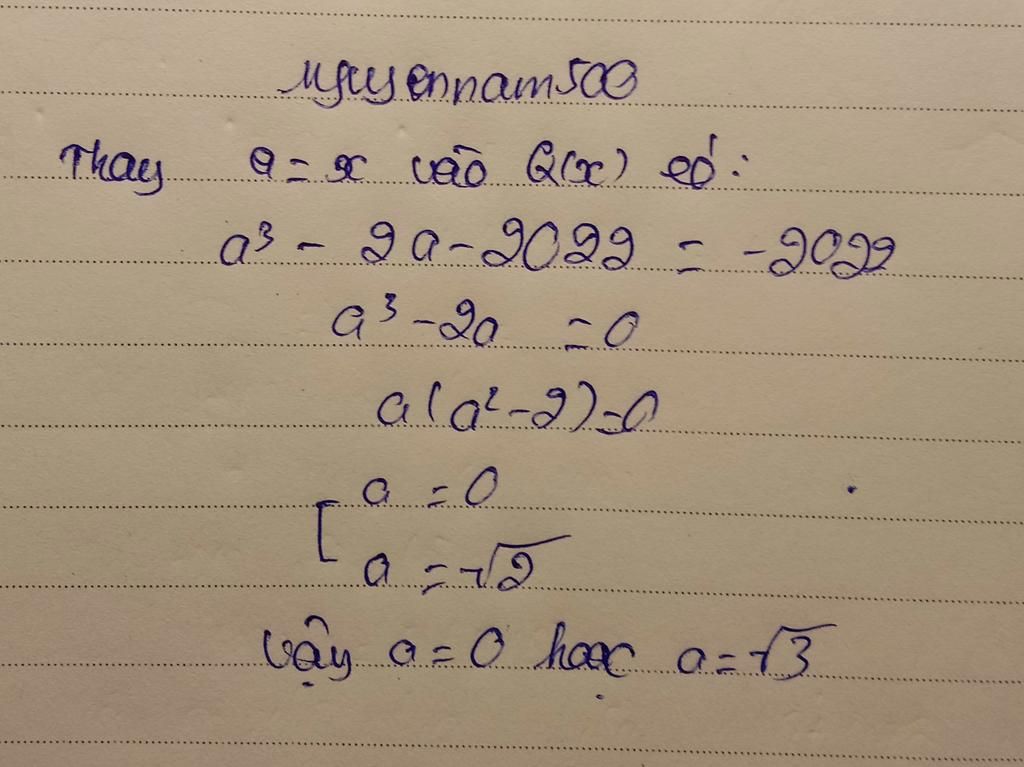 nguyennam500
Thay a = x vào Q(x) có:
a³ - 2a - 2022 = -2022
a³ - 2a = 0
a(a² - 2) = 0
[ a = 0
a = √2
Vậy a = 0 hoặc a = √3